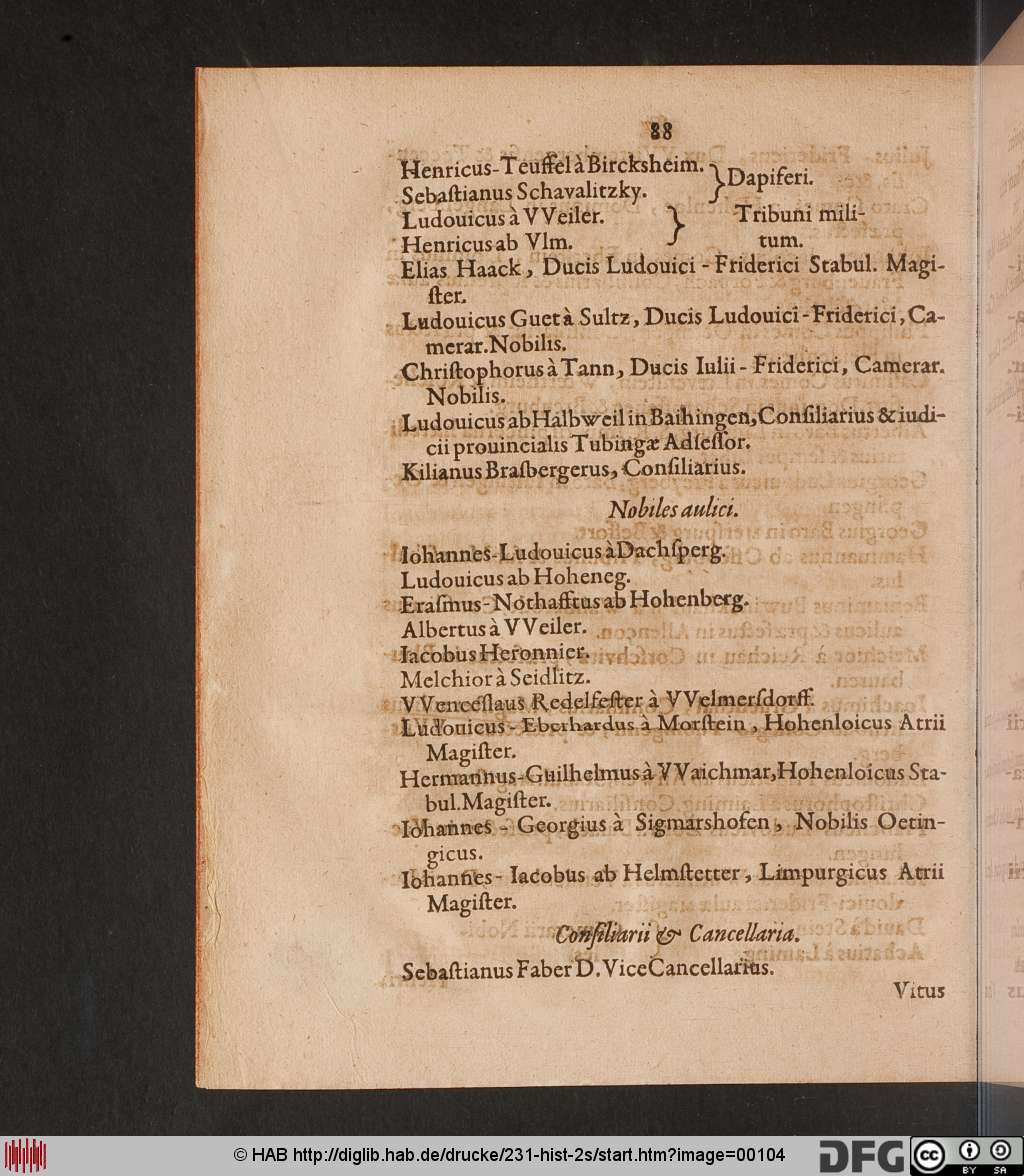 88
Henricus-Teuffel à Bircksheim. } Dapiferi.
Sebaſtianus Schavalitzky.
Ludouicus à VVeiler. } Tribuni mili-
Henricus ab Vlm. tum.
Elias Haack, Ducis Ludouici - Friderici Stabul. Magi-
ſter.
Ludouicus Guet à Sultz, Ducis Ludouici-Friderici, Ca-
merar. Nobilis.
Chriſtophorus à Tann, Ducis Iulii - Friderici, Camerar.
Nobilis.
Ludouicus ab Halbweil in Baihingen, Conſiliarius & iudi-
cii prouincialis Tubingæ Adſeſſor.
Kilianus Braſbergerus, Conſiliarius.
Nobiles aulici.
Iohannes-Ludouicus à Dachſperg.
Ludouicus ab Hoheneg.
Eraſmus-Nothafftus ab Hohenberg.
Albertus à VVeiler.
Iacobus Heronnier.
Melchior à Seidlitz.
VVenceſlaus Redelfeſter à VVelmerſdorff.
Ludouicus - Eberhardus à Morſtein, Hohenloicus Atrii
Magiſter.
Hermannus-Guilhelmus à VVaichmar, Hohenloicus Sta-
bul. Magiſter.
Iohannes - Georgius à Sigmarshofen, Nobilis Oetin-
gicus.
Iohannes- Iacobus ab Helmſtetter, Limpurgicus Atrii
Magiſter.
Conſiliarii & Cancellaria.
Sebaſtianus Faber D. ViceCancellarius.
Vitus
© HAB http://diglib.hab.de/drucke/231-hist-2s/start.htm?image=00104
DFG
cc BY SA